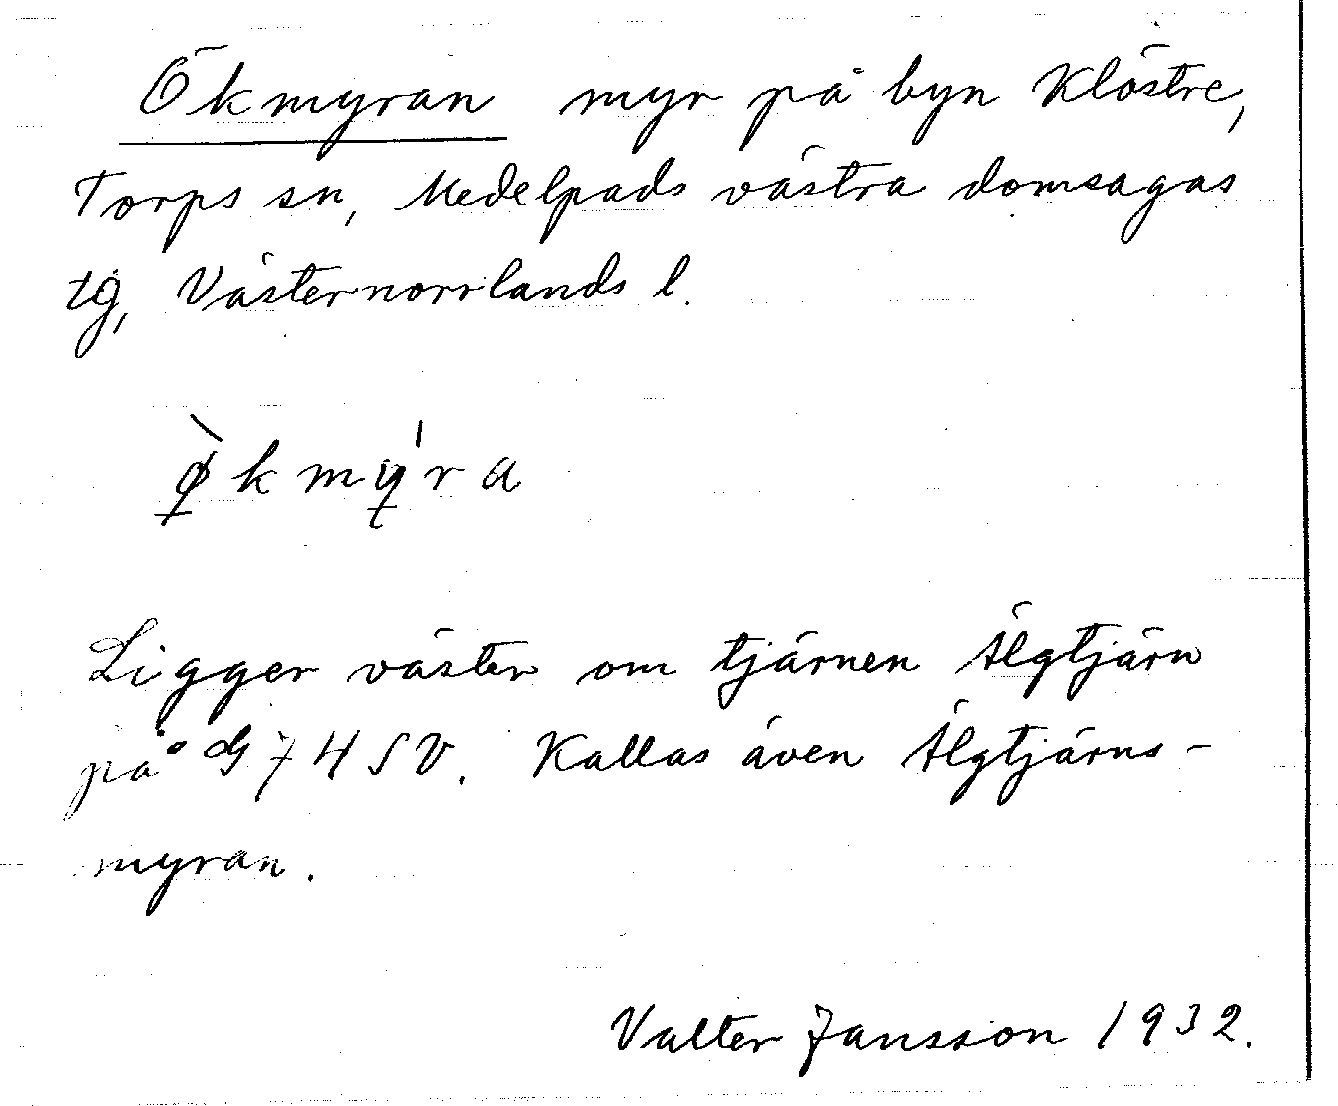 Ökmyran myr på byn Klöstre,
Torps sn, Medelpads västra domsagas
tg, Västernorrlands l.
ø̱̀kmy̱̍ra
Ligger väster om tjärnen Älgtjärn
på G74SV. Kallas även Älgtjärns-
myran.
Valter Jansson 1932.